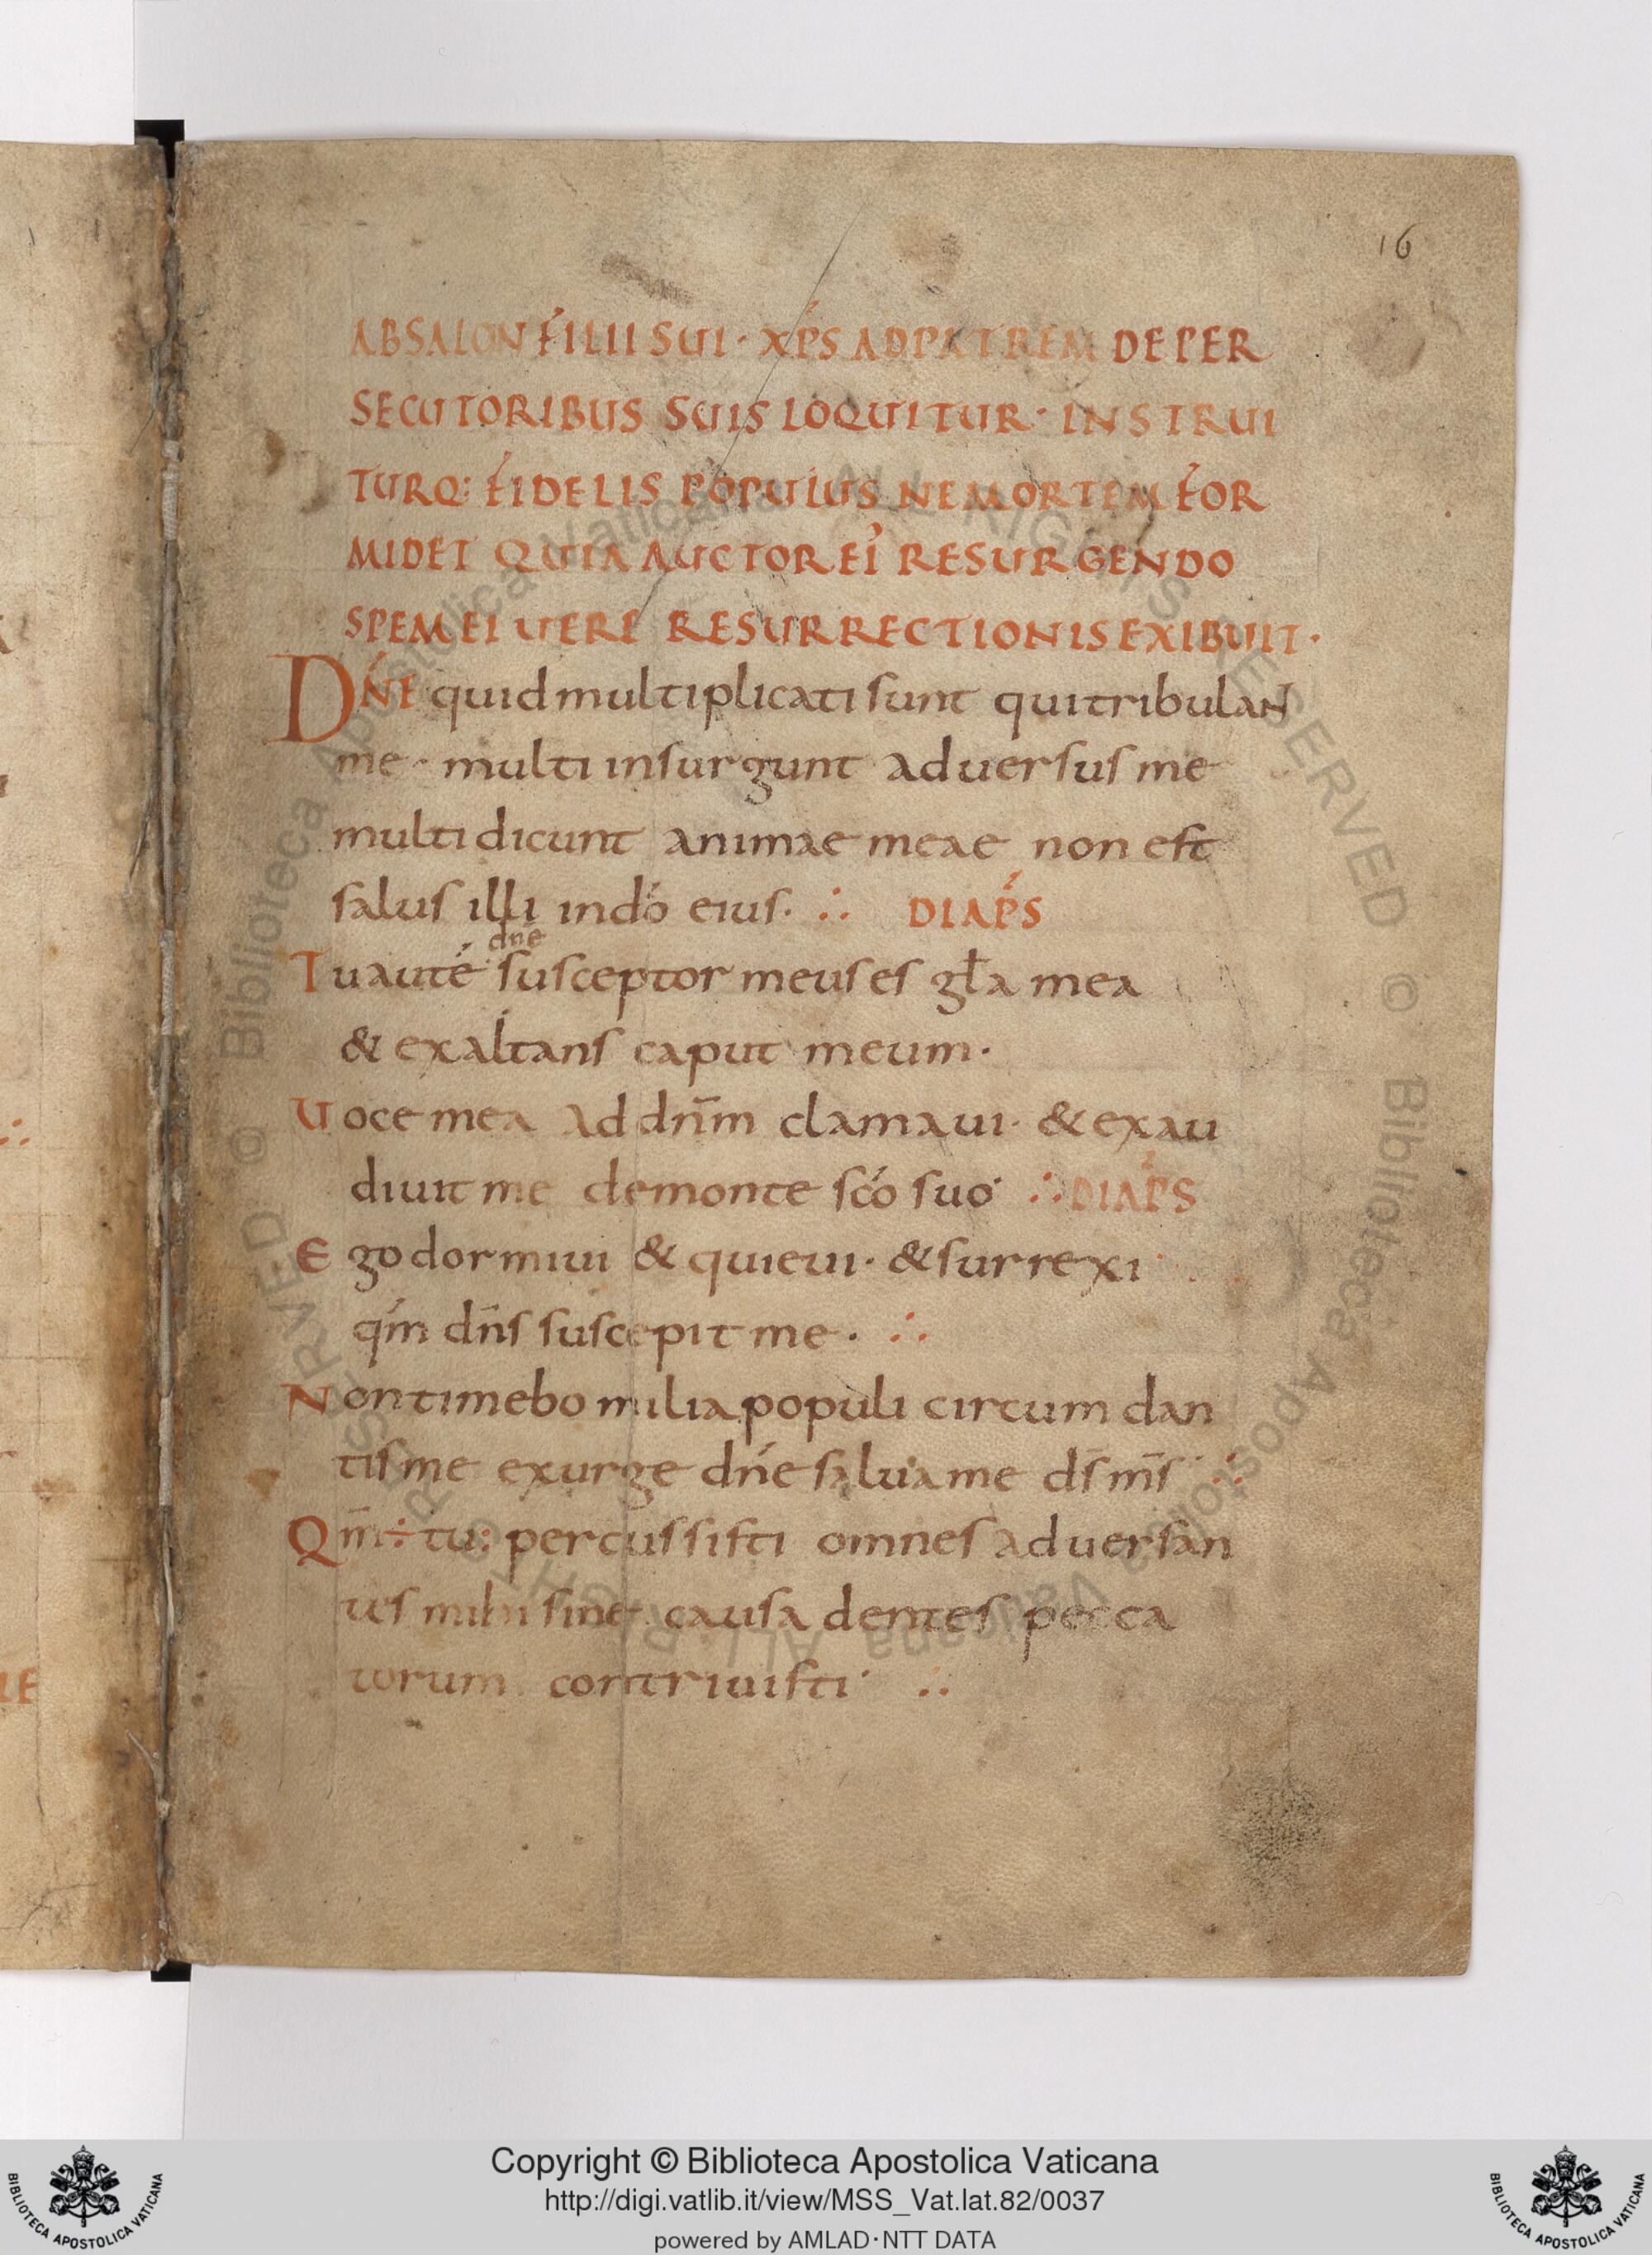 16
ABSALON FILII SUI · XP̄S AD PATREM DE PER
SECUTORIBUS SUIS LOQUITUR · INSTRUI
TURQ: FIDELIS POPULUS NE MORTEM FOR
MIDET QUIA AUCTOR EI RESURGENDO
SPEM EI UERE RESURRECTIONIS EXIBUIT ·
DN̄E quid multiplicati sunt qui tribulan
me · multi insurgunt aduersus me
multi dicunt animae meae non est
salus illi in dō eius · ∴ DIAP̄S
dn̄e
Tu autē susceptor meus es gl̄a mea
& exaltans caput meum ·
Uoce mea ad dn̄m clamaui · & exau
diuit me de monte sc̄o suo · ∴ DIAP̄S
Ego dormiui & quieui · & surrexi
qm̄ dn̄s suscepit me · ∴
Non timebo milia populi circum dan
tis me exurge dn̄e salua me ds̄ ms̄ ∴
Qm̄ ÷ tu : percussisti omnes aduersan
tes mihi sine causa dentes pecca
torum contriuisti · ∴
© Biblioteca Apostolica Vaticana ALL RIGHTS RESERVED © Biblioteca Apostolica Vaticana ALL RIGHTS RESERVED
Copyright © Biblioteca Apostolica Vaticana
http://digi.vatlib.it/view/MSS_Vat.lat.82/0037
powered by AMLAD·NTT DATA
BIBLIOTECA APOSTOLICA VATICANA
BIBLIOTECA APOSTOLICA VATICANA